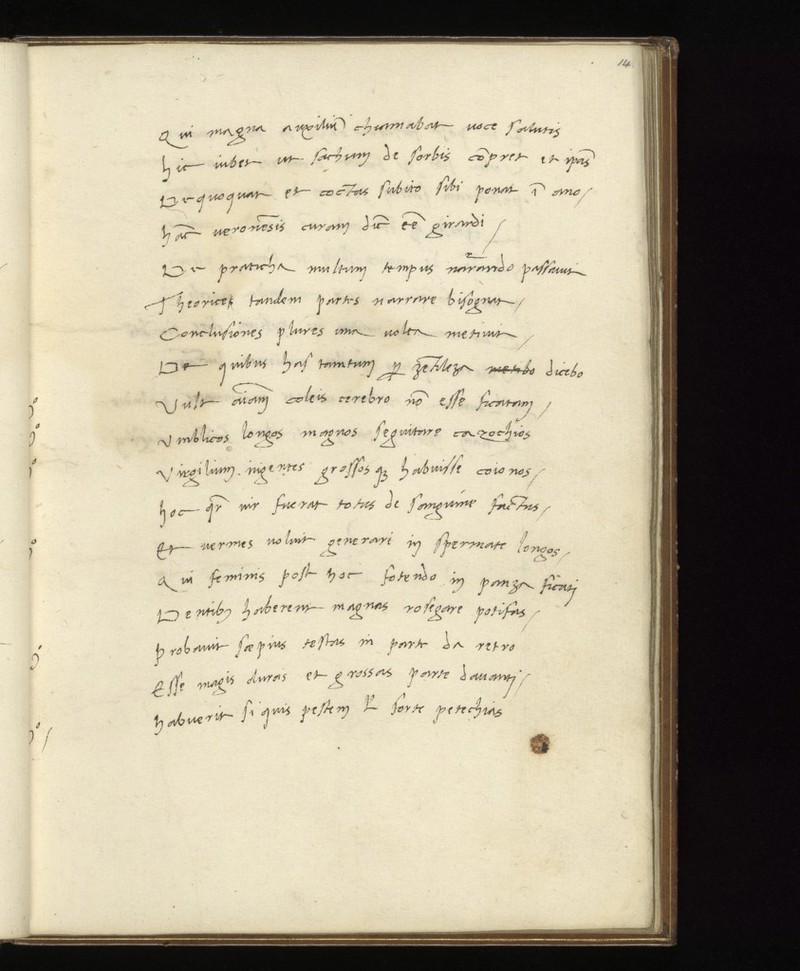 14
Qui magna auxiliū chiamabat uoce salutis
hic iubet ut sachum de sorbis cōpret et ipās
Dequoquat et coctas subito sibi ponat ī ano /
hāc ueronēsis curam dīc eē girardi /
De praticha multum tempus narrando passauit
Theorice tandem partes narrare bisognat /
Conclusiones plures una uolta metiuit /
De quibus has tantum zētileza dicebo
Vult aīam coleis cerebro nō esse ficatam /
Vmblicos longos magnos seguitare cazochios
Virgilium ingentes grossosq; habuisse coionos /
hoc qr uir fuerat totus de sanguine factus /
Et uermes uoluit generari in spermate longos /
Qui feminis post hoc fotendo in panza ficati
Dentibꝫ haberent magnas rosegare potifas /
Probauit sæpius testas in parte da retro
Esse magis duras et grossas parte dauanti /
habuerit si quis pestem uł forte petechias